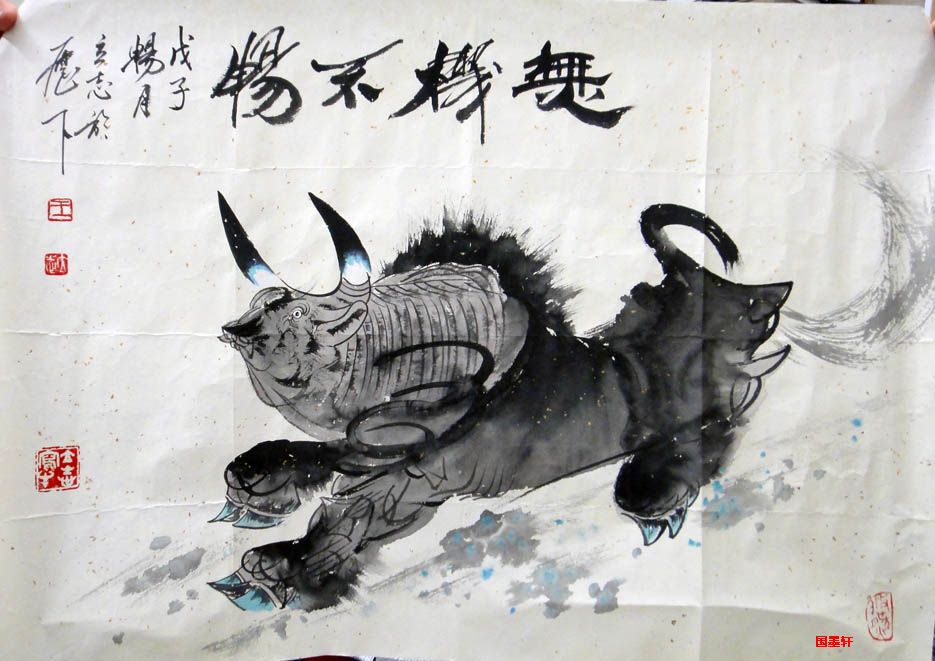 無機不暢
戊子
暢月
立志於
歷下
王
国墨轩